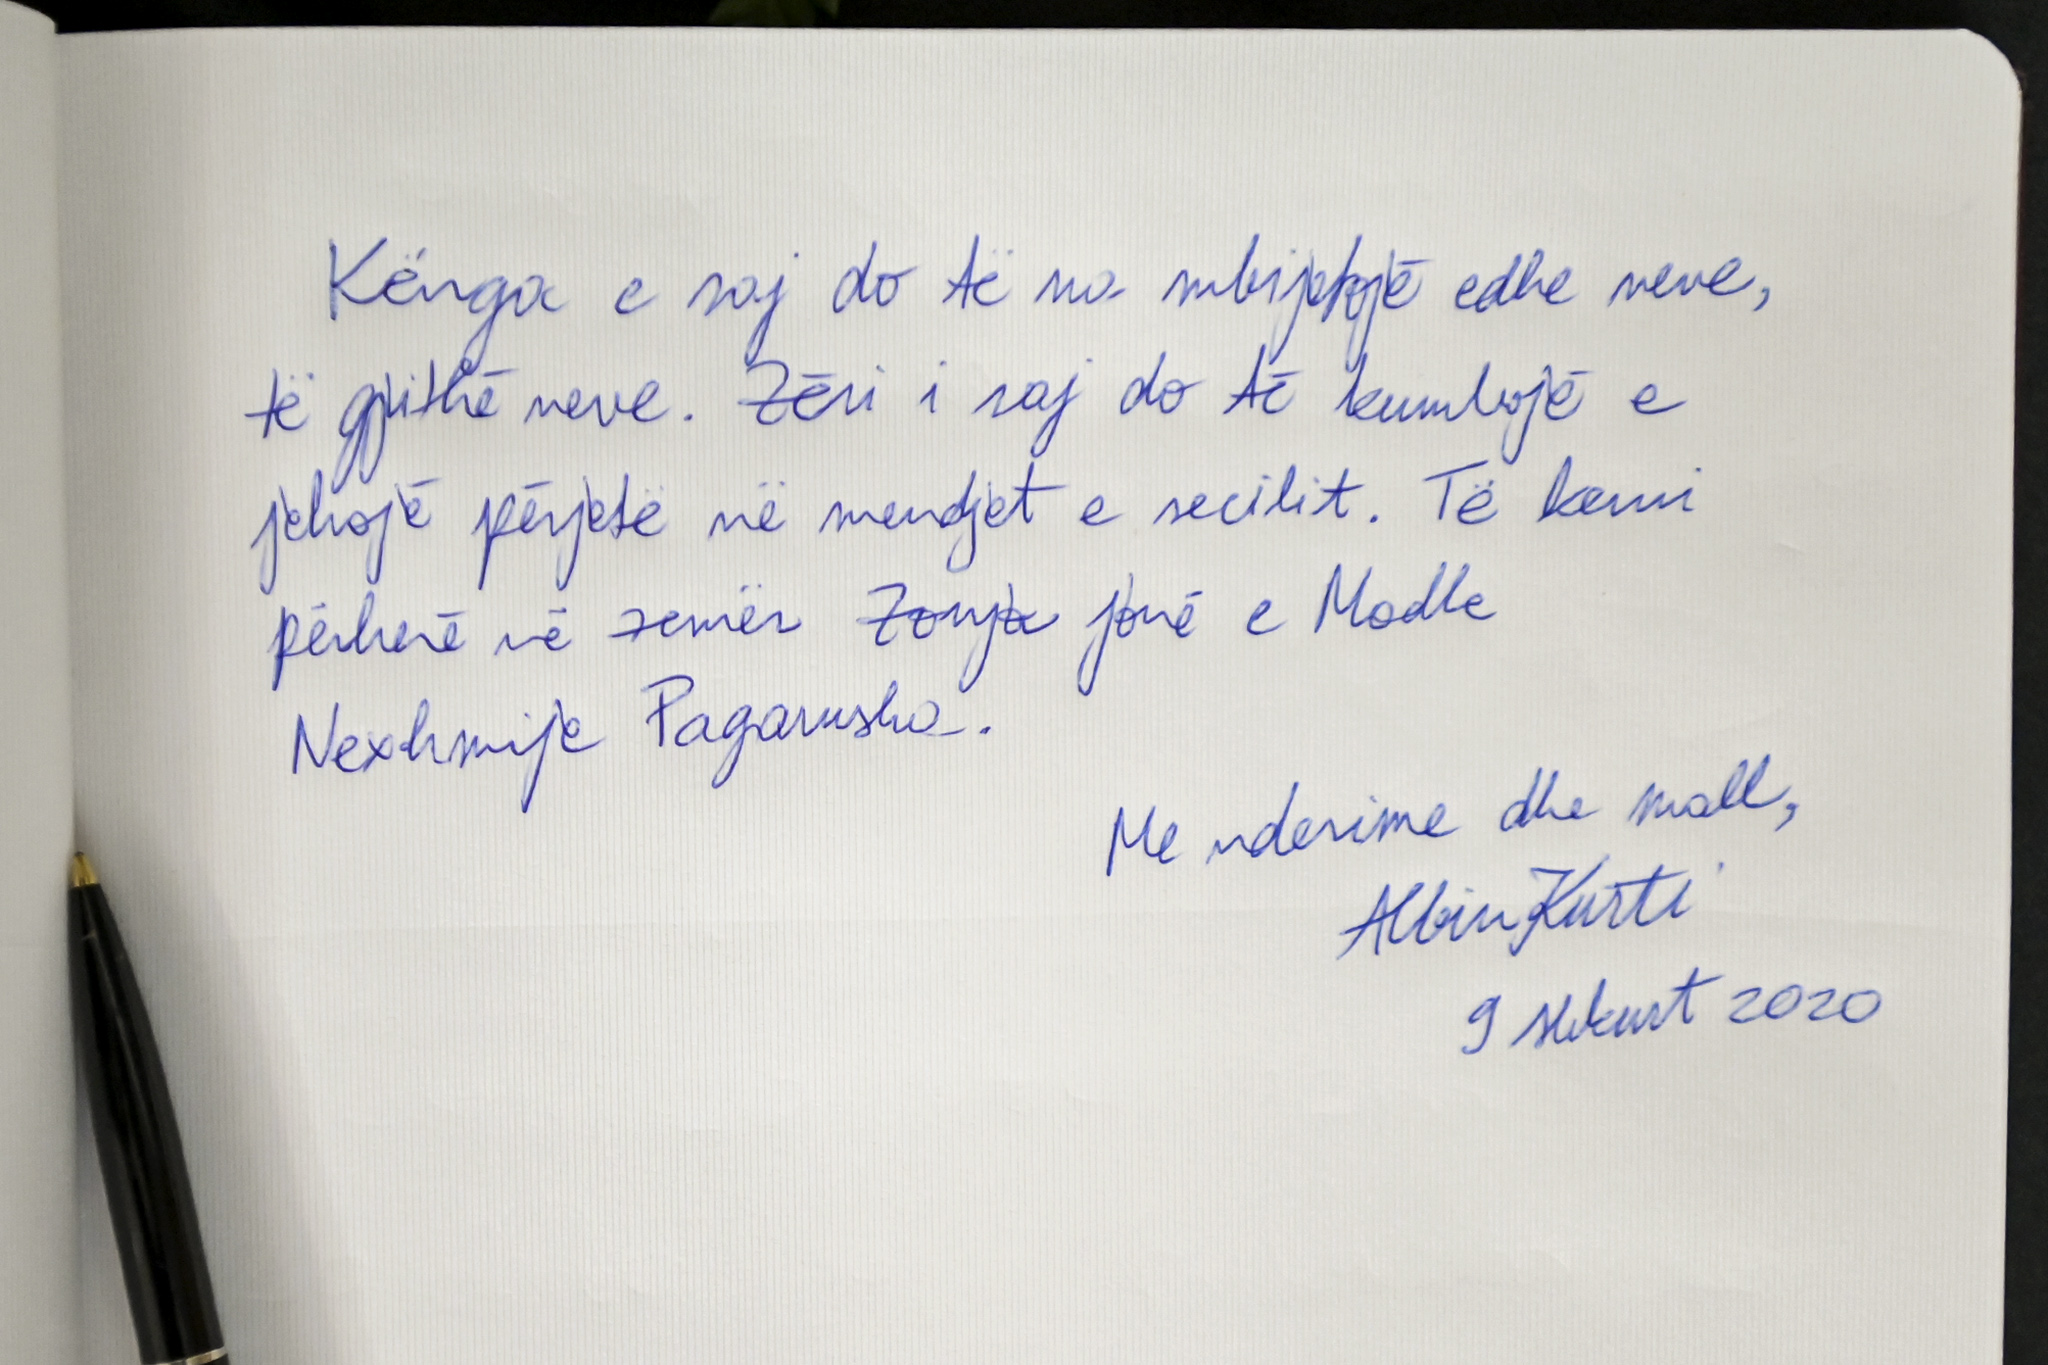 Kënga e saj do të na mbijetojë edhe neve,
të gjithë neve. Zëri i saj do të kumbojë e
jehojë përjetë në mendjet e secilit. Të kemi
përherë në zemër Zonja jonë e Madhe
Nexhmije Pagarusha.
Me nderime dhe mall,
Albin Kurti
9 shkurt 2020